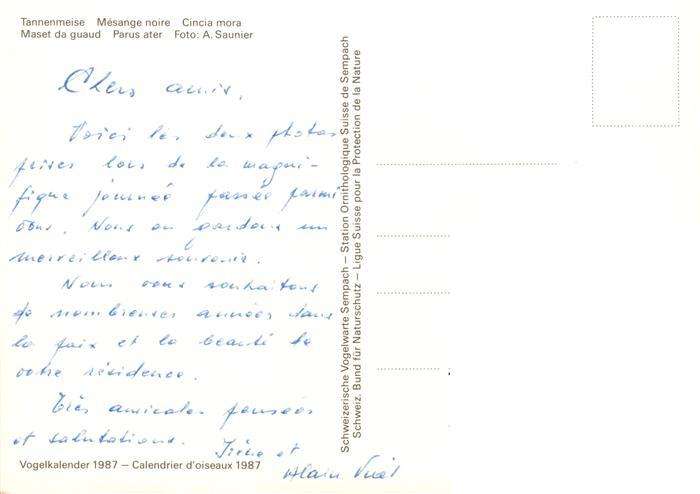 Tannenmeise Mésange noire Cincia mora
Maset da guaud Parus ater Foto: A. Saunier
Chers amis,
Voici les deux photos
prises lors de la magni-
fique journée passée parmi
vous. Nous en gardons un
merveilleux souvenir.
Nous vous souhaitons
de nombreuses années dans
la paix et la beauté de
votre résidence.
Très amicales pensées
et salutations. Irène et
Alain
Vogelkalender 1987 – Calendrier d'oiseaux 1987
Schweizerische Vogelwarte Sempach – Station Ornithologique Suisse de Sempach
Schweiz. Bund für Naturschutz – Ligue Suisse pour la Protection de la Nature